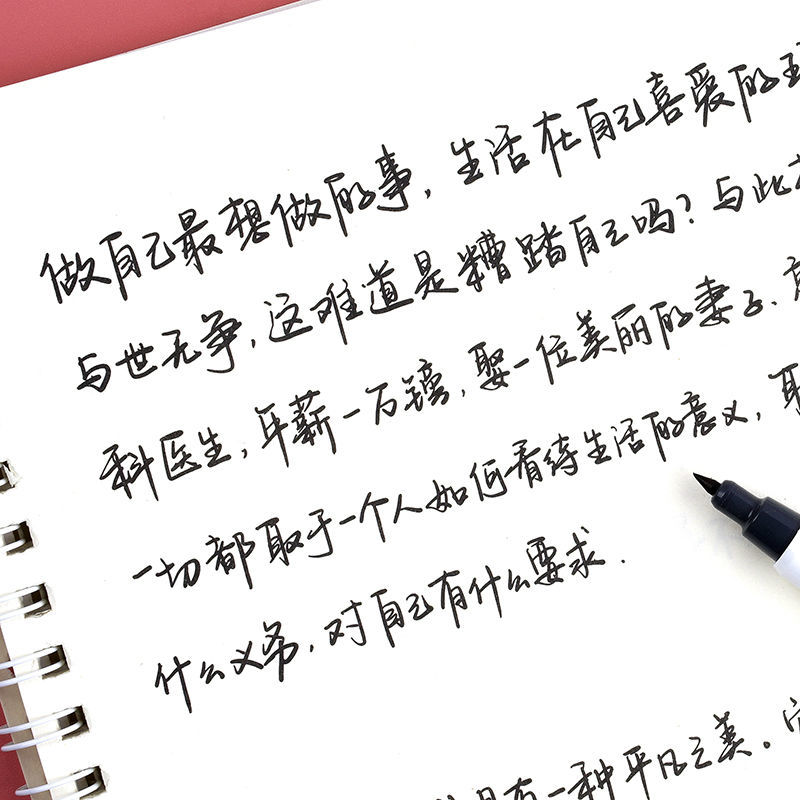 做自己最想做的事，生活在自己喜爱的
与世无争，这难道是糟踏自己吗？与此
科医生，年薪一万镑，娶一位美丽的妻子、
一切都取于一个人如何看待生活的意义，
什么义务，对自己有什么要求.
有一种平凡之美。